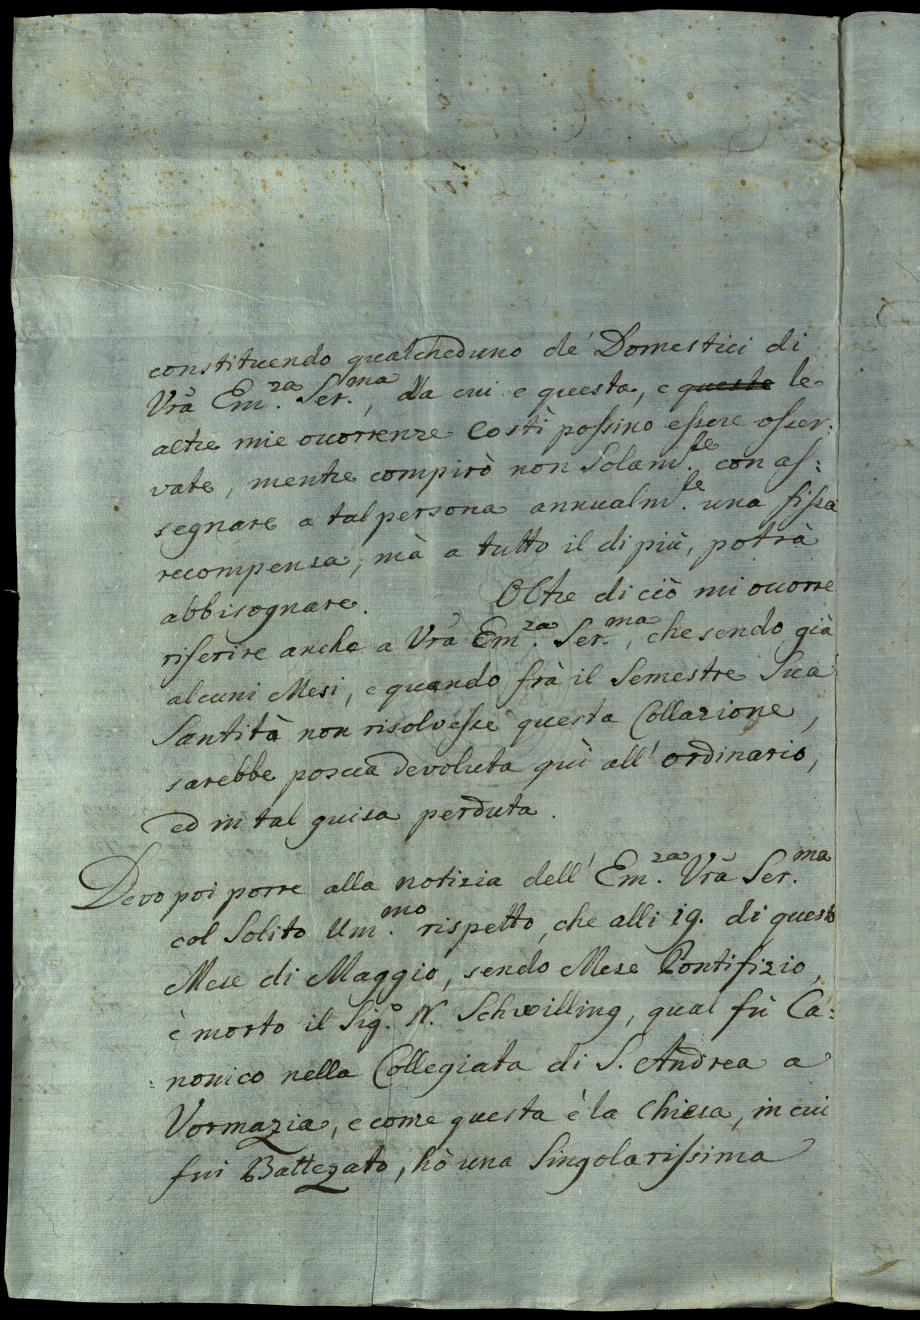 constituendo qualcheduno de' Domestici di
Vrã Em.za Ser.ma, da cui e questa, e queste le
altre mie ocorrenze costì poſsino eſsere oſser:
vate, mentre compirò non Solam.te con aſ:
segnare a tal persona annualm.te una fiſsa
recompensa, mà a tutto il di più, potrà
abbisognare. Oltre di ciò mi ocorre
riferire anche a Vrã Em.za Ser.ma, che sendo già
alcuni Mesi, e quando frà il Semestre Sua
Santità non risolveſse questa Collazione,
sarebbe poscia devoluta quì all' ordinario,
ed in tal guisa perduta.
Devo poi porre alla notizia dell' Em.za Vrã Ser.ma
col Solito Um.mo rispetto, che alli 19. di questo
Mese di Maggio, sendo Mese Pontifizio,
è morto il Sig.r N. Schwilling, qual fù Ca:
: nonico nella Collegiata di S. Andrea a
Vormazia, e come questa è la Chiesa, in cui
fui Battezato, hò una Singolariſsima